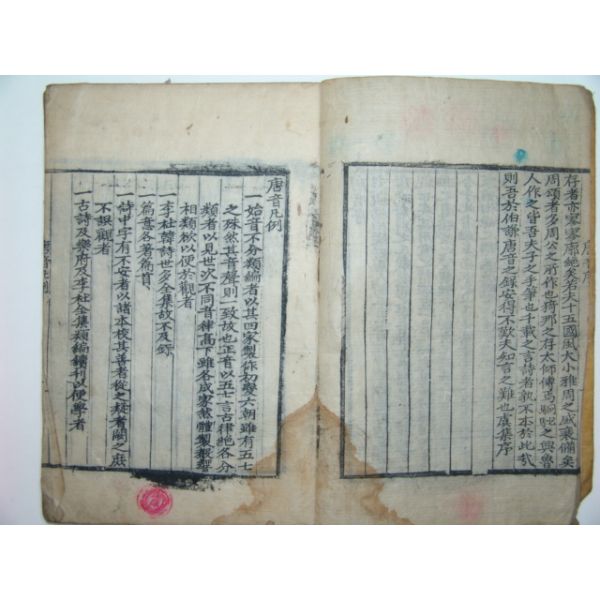 存者亦寥寥廓絶矣若夫十五國風大小雅周之盛衰備矣
周頌者多周公之所作也猗那之存太師傳焉駉駜之興魯
人作之皆吾夫子之手筆也千載之言詩者孰不本於此哉
則吾於伯謙唐音之録安得不歎夫知言之難也虞集序
唐音序
唐音凡例
一始音不分類編者以其四家製作初變六朝雖有五七
之殊然其音聲則一致故也正音以五七言古律絶各分
類者以見世次不同音律高下雖各成家然體製聲響
相類欲以便於觀者
一李杜韓詩世多全集故不及録
一篇意各著篇首
一詩中字有不安者以諸本校其善者從之疑者闕之庶
不誤觀者
一古詩及樂府及李杜全集類編續刊以便學者